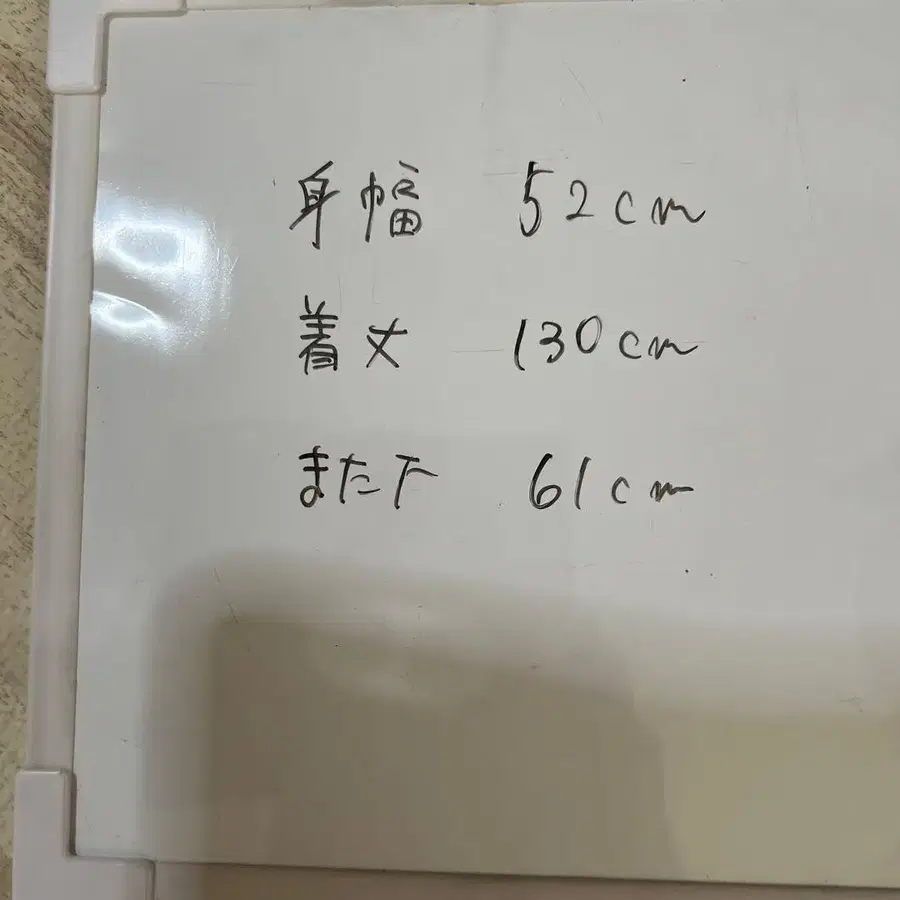 身幅 52cm
着丈 130cm
また下 61cm